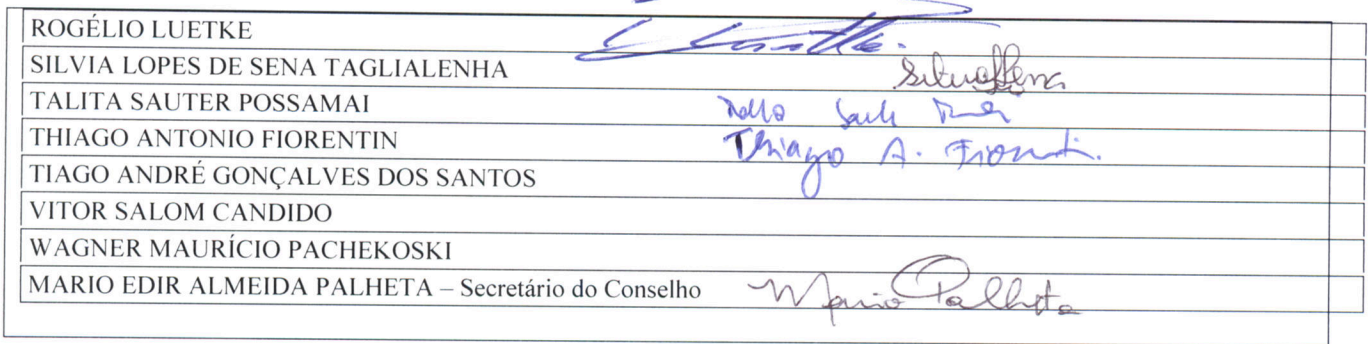 ROGÉLIO LUETKE
SILVIA LOPES DE SENA TAGLIALENHA
TALITA SAUTER POSSAMAI
THIAGO ANTONIO FIORENTIN Thiago A. Fiorentin
TIAGO ANDRÉ GONÇALVES DOS SANTOS
VITOR SALOM CANDIDO
WAGNER MAURÍCIO PACHEKOSKI
MARIO EDIR ALMEIDA PALHETA – Secretário do Conselho Mario Palheta